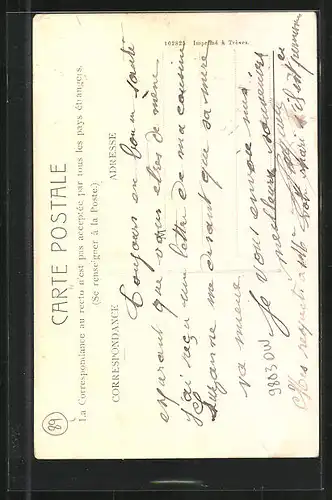 CARTE POSTALE
La Correspondance au recto n'est pas acceptée par tous les pays étrangers.
(Se renseigner à la Poste.)
CORRESPONDANCE ADRESSE
162825 Imprimé à Trèves.
Toujours en bonne santé
espérant que vous êtes de même
J'ai reçu une lettre de ma cousine
Suzanne me disant que sa mère
va mieux.
Je vous envoie mes
meilleurs souvenirs
Mes respects à Mme
9803OW
89